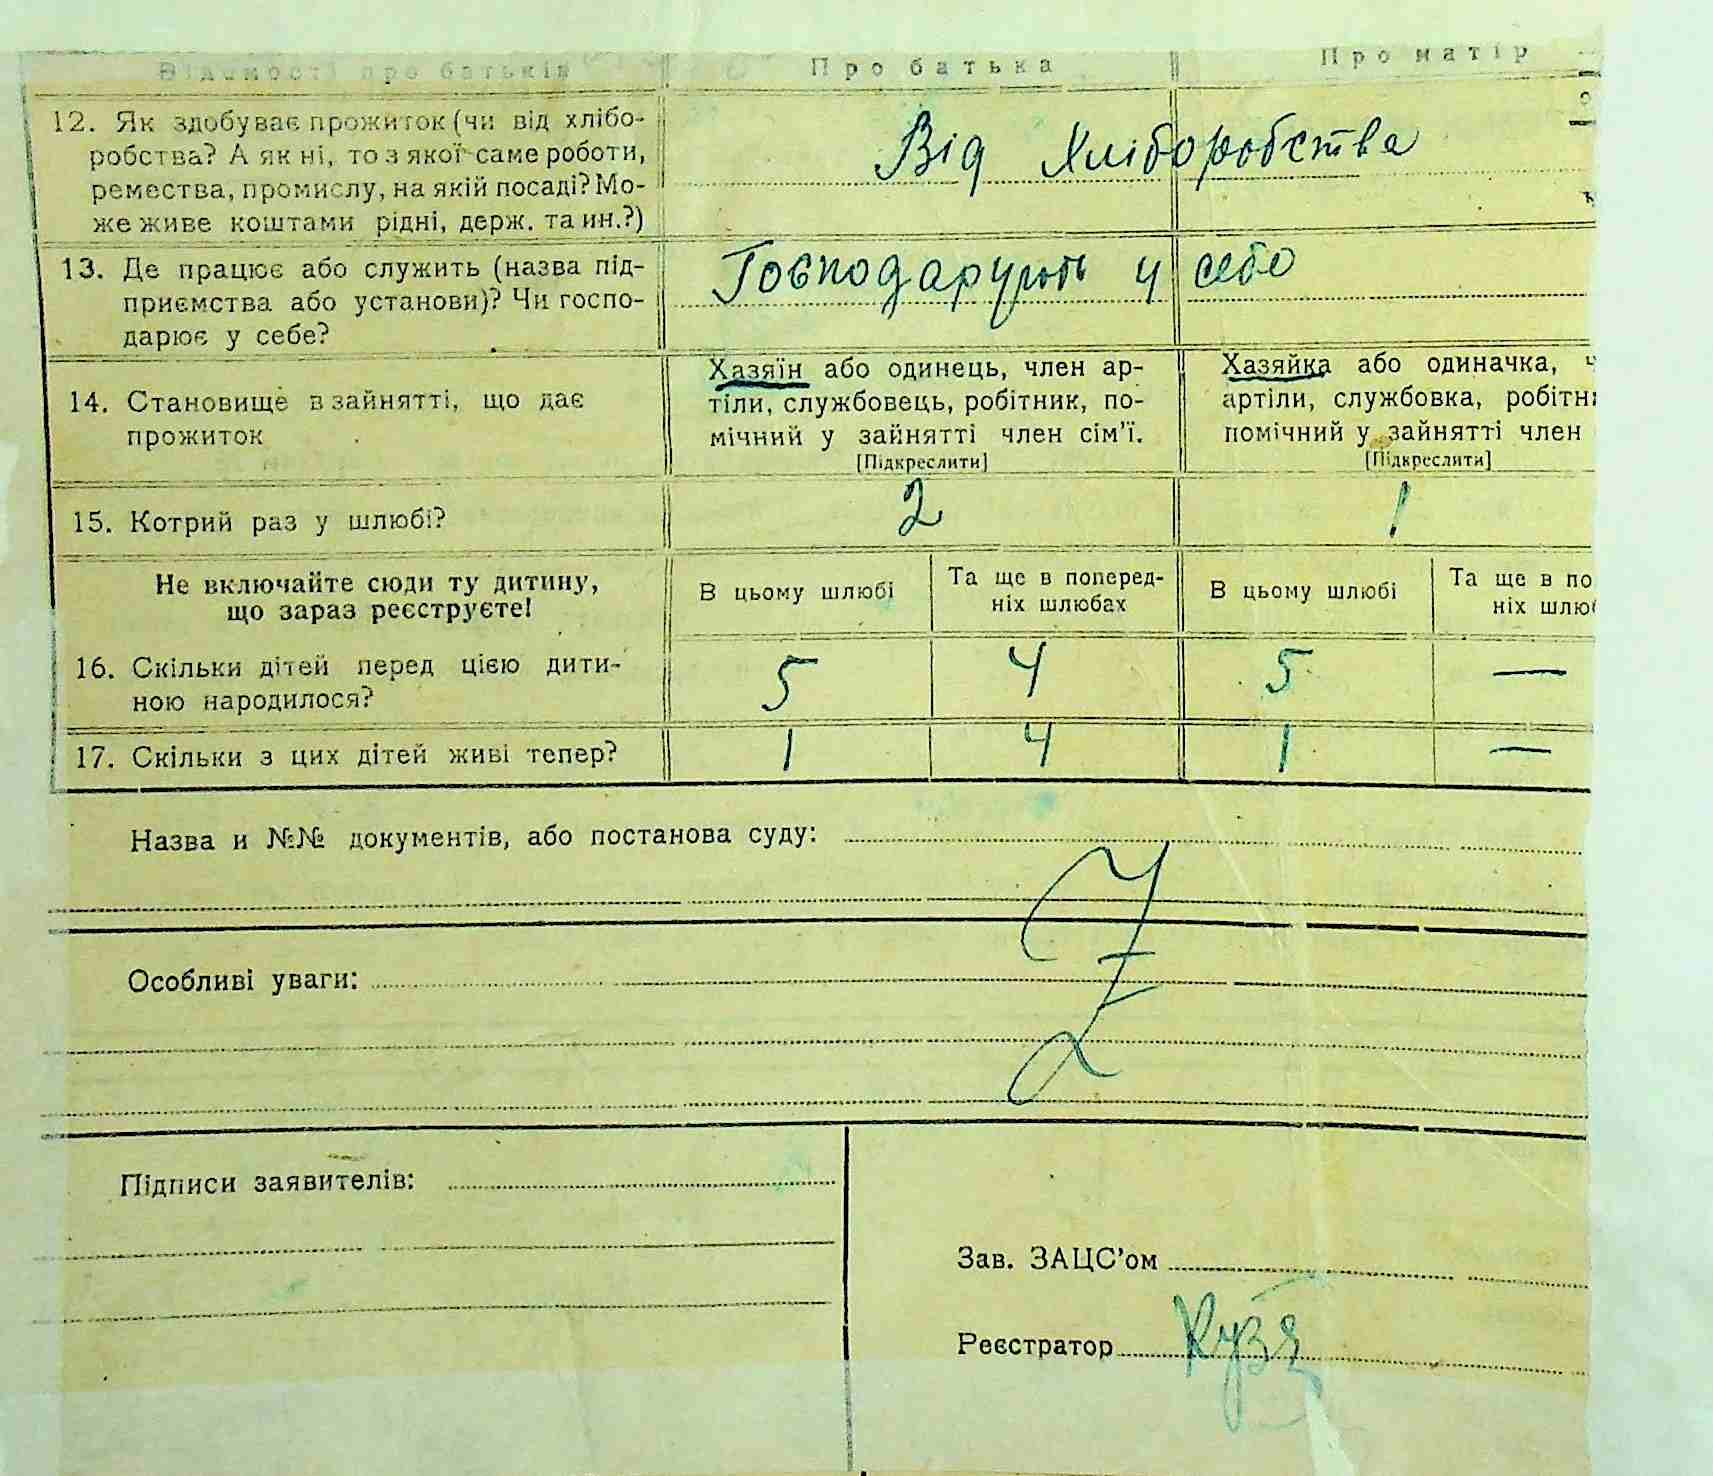 Відомості про батьків Про батька Про матір
12. Як здобуває прожиток (чи від хлібо-
робства? А як ні, то з якої саме роботи,
ремества, промислу, на якій посаді? Мо-
же живе коштами рідні, держ. та ин.?)
Від Хліборобства
13. Де працює або служить (назва під-
приємства або установи)? Чи госпо-
дарює у себе?
Господарують у себе
14. Становище в зайнятті, що дає
прожиток
Хазяїн або одинець, член ар-
тіли, службовець, робітник, по-
мічний у зайнятті член сім'ї.
[Підкреслити]
Хазяйка або одиначка, ч
артіли, службовка, робітн
помічний у зайнятті член
[Підкреслити]
15. Котрий раз у шлюбі? 2 1
Не включайте сюди ту дитину,
що зараз реєструєте!
В цьому шлюбі
Та ще в поперед-
ніх шлюбах
В цьому шлюбі
Та ще в по
ніх шлюб
16. Скільки дітей перед цією дити-
ною народилося?
5 4 5 —
17. Скільки з цих дітей живі тепер? 1 4 1 —
Назва и №№ документів, або постанова суду:
Особливі уваги:
Підписи заявителів:
Зав. ЗАЦС'ом
Реєстратор